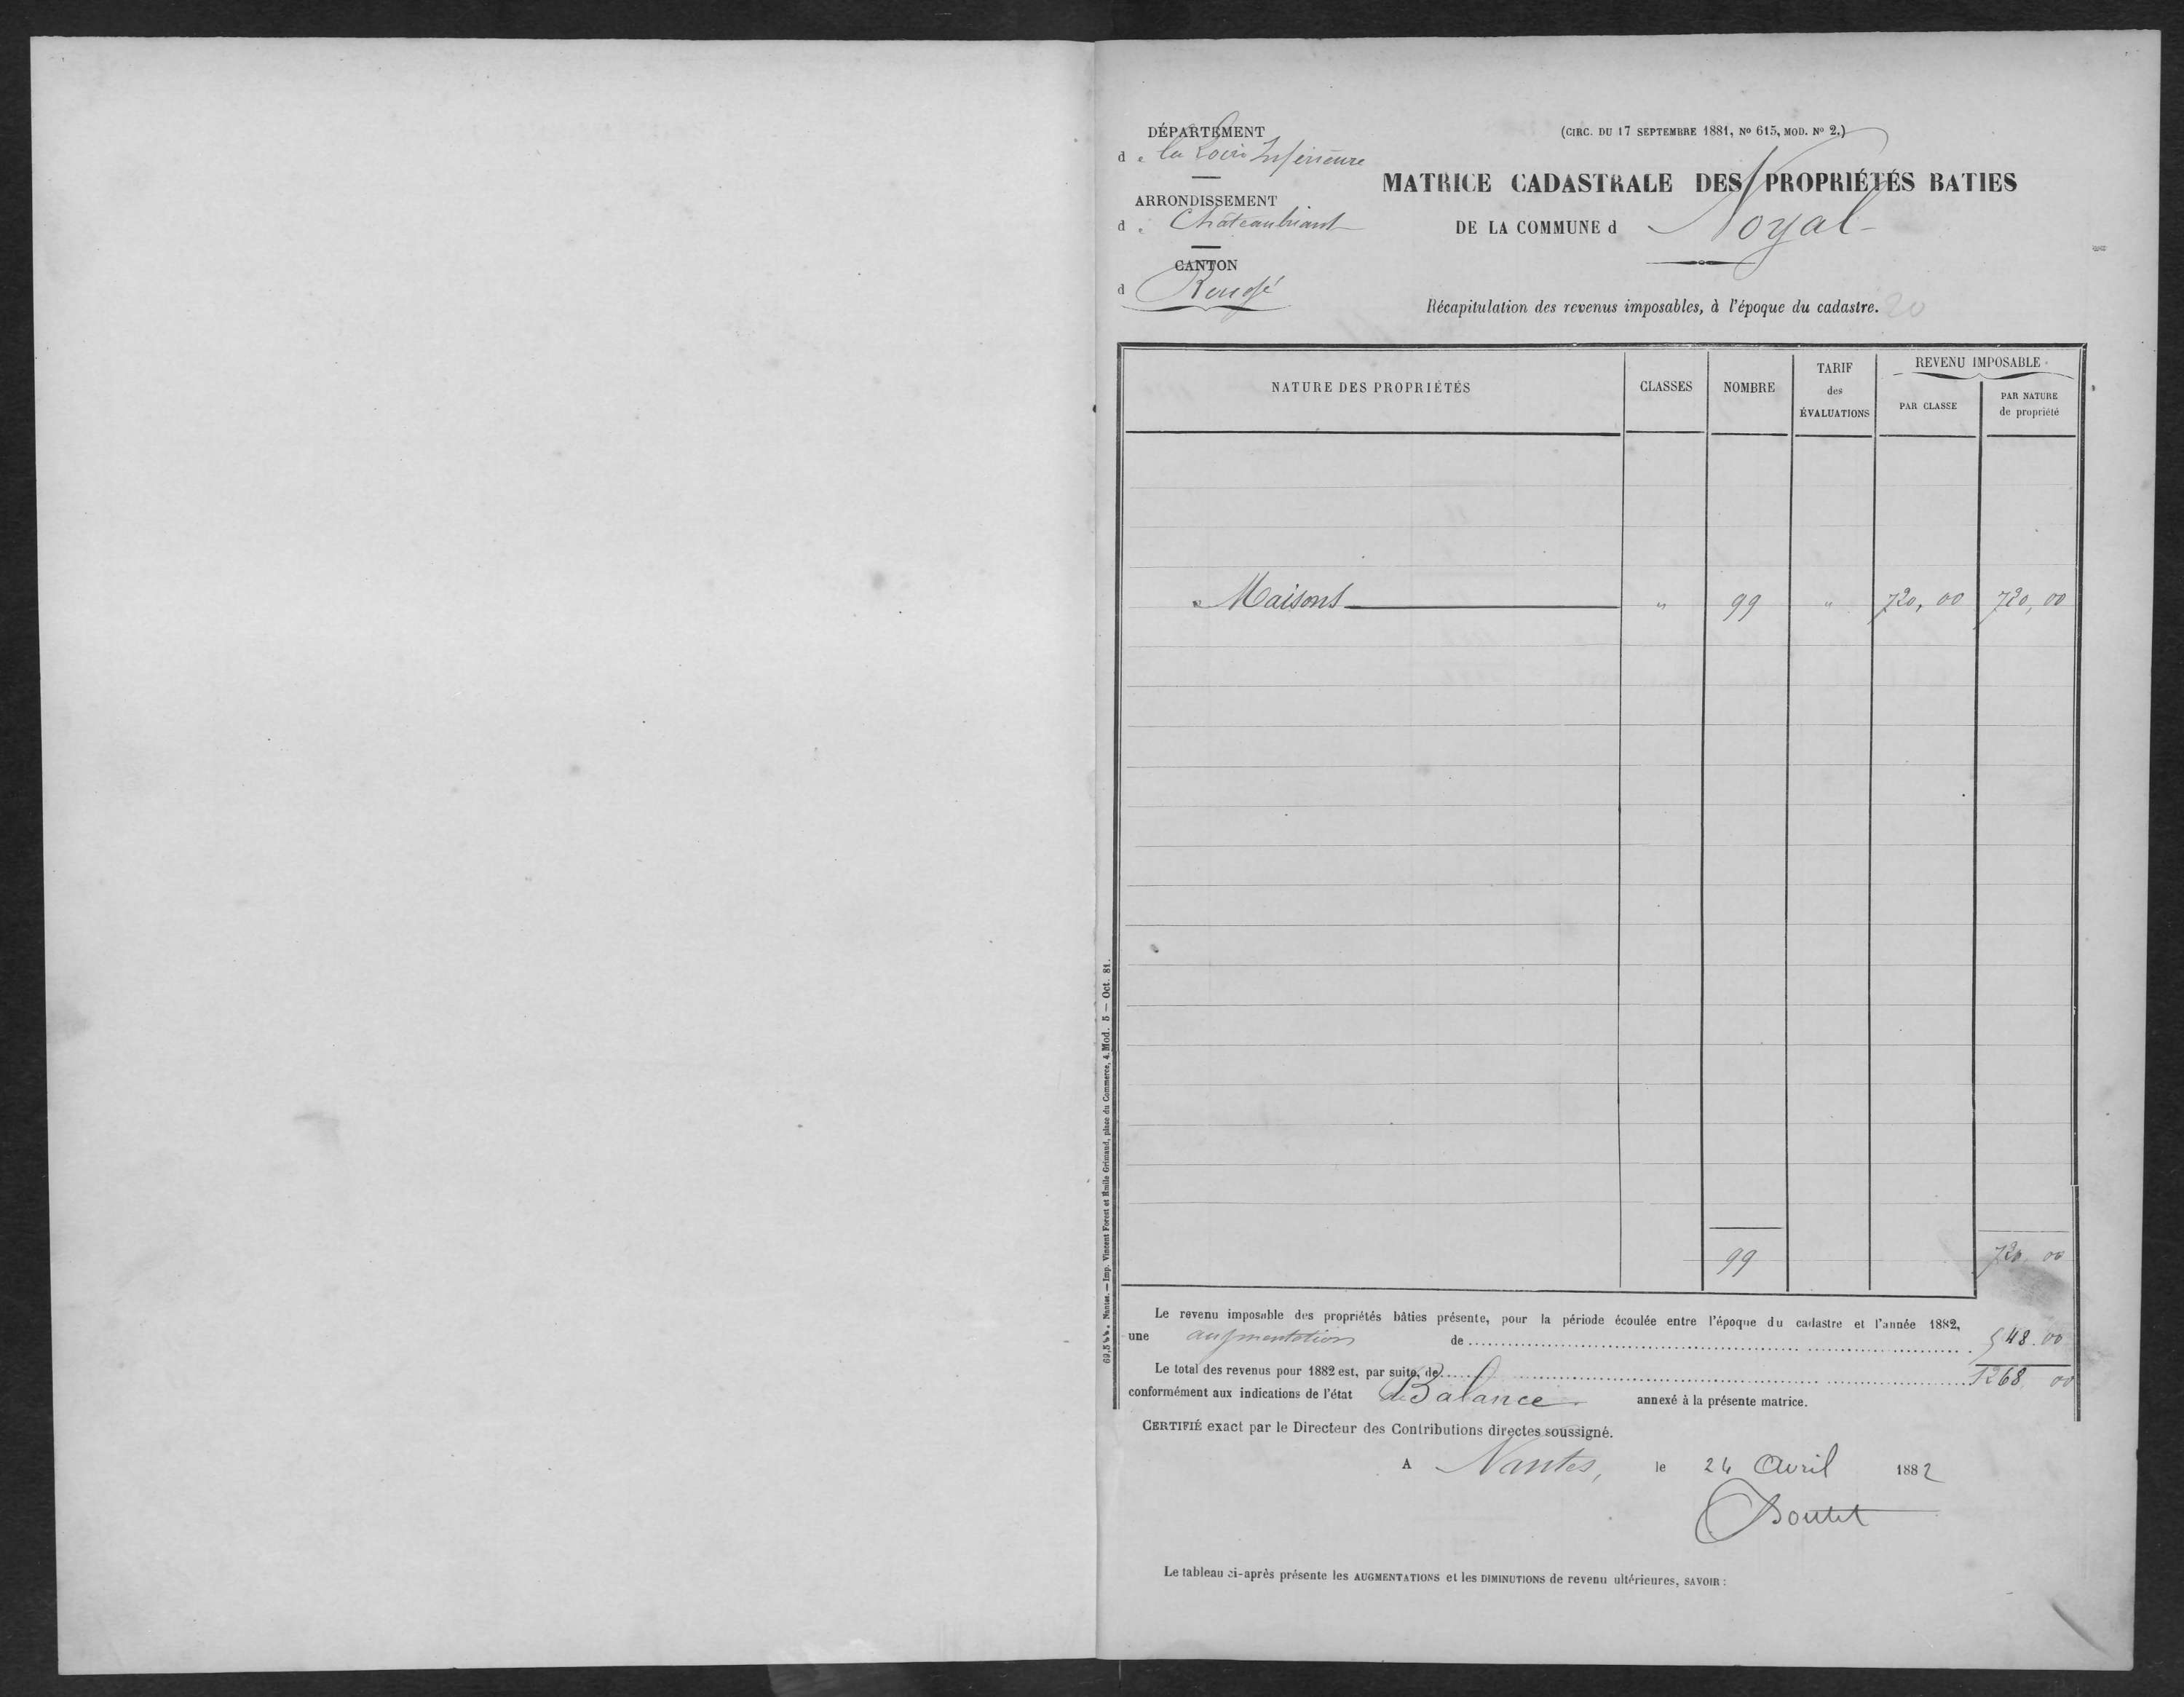 DÉPARTEMENT
de la Loire Inférieure
ARRONDISSEMENT
de Châteaubriant
CANTON
d Rougé
(CIRC. DU 17 SEPTEMBRE 1881, No 615, MOD. No 2.)
MATRICE CADASTRALE DES PROPRIÉTÉS BATIES
DE LA COMMUNE d Noyal
Récapitulation des revenus imposables, à l'époque du cadastre. 20
NATURE DES PROPRIÉTÉS CLASSES NOMBRE TARIF des ÉVALUATIONS REVENU IMPOSABLE
PAR CLASSE PAR NATURE de propriété
Maisons " 99 " 720,00 720,00
99 720 00
Le revenu imposable des propriétés bâties présente, pour la période écoulée entre l'époque du cadastre et l'année 1882,
une augmentation de 548.00
Le total des revenus pour 1882 est, par suite, de 1268 00
conformément aux indications de l'état de Balance annexé à la présente matrice.
CERTIFIÉ exact par le Directeur des Contributions directes soussigné.
A Nantes, le 24 Avril 1882
Le tableau ci-après présente les AUGMENTATIONS et les DIMINUTIONS de revenu ultérieures, SAVOIR :
Nantes. — Imp. Vincent Forest et Emile Grimaud, place du Commerce, 4. Mod. 5 — Oct. 81.